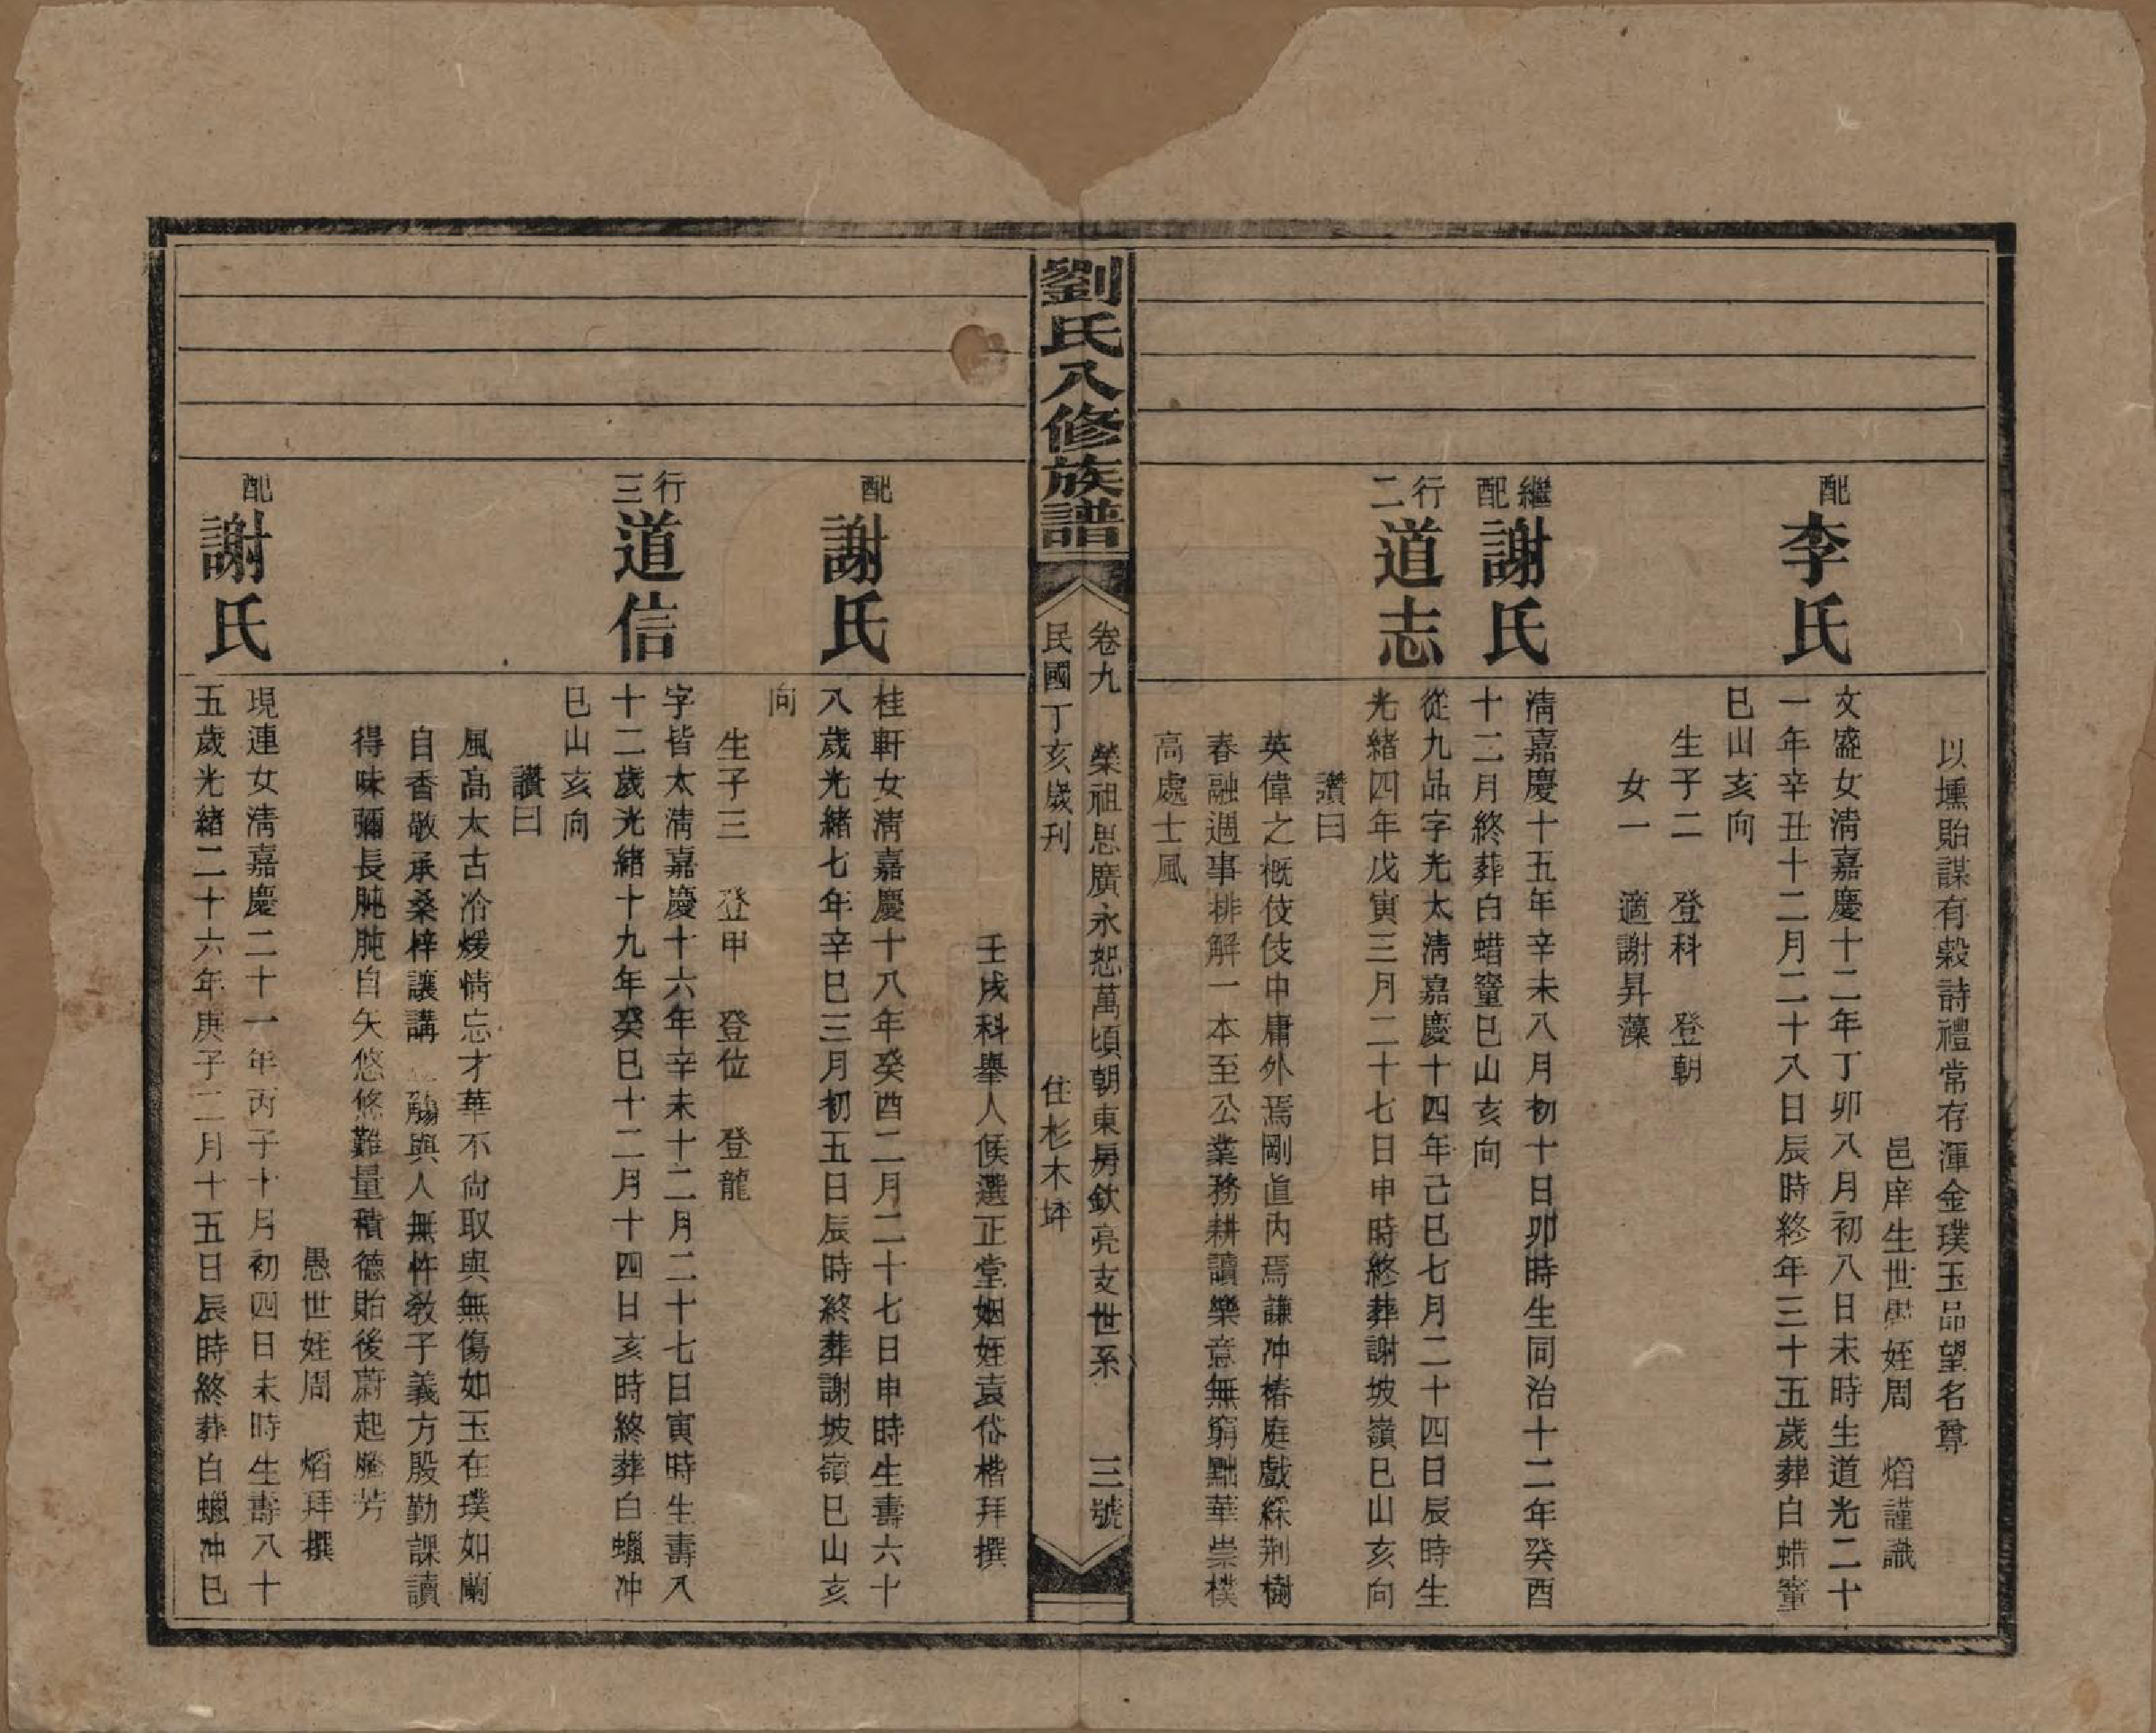 以壎貽謀有穀詩禮常存渾金璞玉品望名尊
邑庠生世愚姪周　熖謹識
配李氏
文盛女清嘉慶十二年丁卯八月初八日未時生道光二十
一年辛丑十二月二十八日辰時終年三十五歲葬白蜡窰
巳山亥向
生子二　登科　登朝
女一　適謝昇藻
繼配謝氏
清嘉慶十五年辛未八月初十日卯時生同治十二年癸酉
十二月終葬白蜡窰巳山亥向
行二道志
從九品字光太清嘉慶十四年己巳七月二十四日辰時生
光緒四年戊寅三月二十七日申時終葬謝坡嶺巳山亥向
讚曰
英偉之概伎伎中庸外焉剛直內焉謙冲椿庭戲綵荆樹
春融週事排解一本至公業務耕讀樂意無窮黜華崇樸
高處士風
劉氏八修族譜
卷九　榮祖思廣永恕萬頃朝東房欽亮支世系　三號
民國丁亥歲刊　住杉木坪
壬戌科舉人候選正堂姻姪袁岱楷拜撰
配謝氏
桂軒女清嘉慶十八年癸酉二月二十七日申時生壽六十
八歲光緒七年辛巳三月初五日辰時終葬謝坡嶺巳山亥
向
生子三　登甲　登位　登龍
行三道信
字皆太清嘉慶十六年辛未十二月二十七日寅時生壽八
十二歲光緒十九年癸巳十二月十四日亥時終葬白蠟冲
巳山亥向
讚曰
風高太古冷煖情忘才華不尚取與無傷如玉在璞如蘭
自香敬承桑梓讓講　觴與人無忤教子義方殷勤課讀
得味彌長肫肫自矢悠悠難量積德貽後蔚起騰芳
愚世姪周　熖拜撰
配謝氏
現連女清嘉慶二十一年丙子十月初四日未時生壽八十
五歲光緒二十六年庚子二月十五日辰時終葬白蠟冲巳